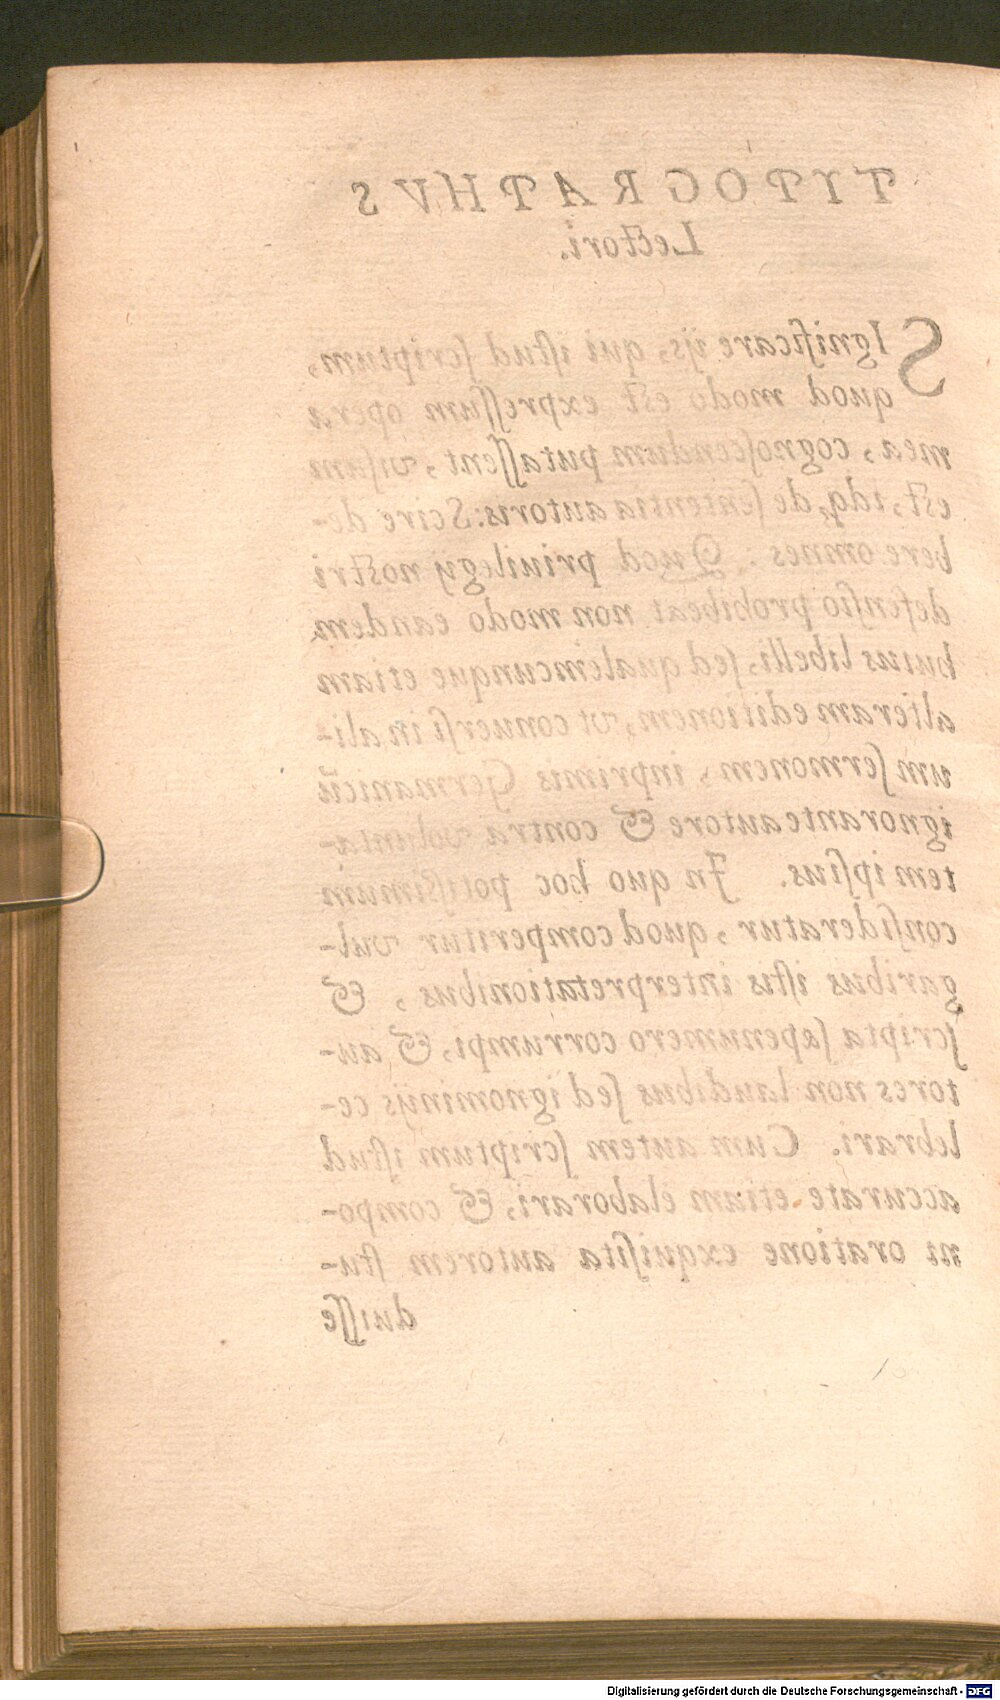 TYPOGRAPHVS
Lectori.
SIgnificare ijs, qui iſtud ſcriptum,
quod modo eſt expreſſum opera
mea, cognoſcendum putaſſent, viſum
eſt, idq́, de ſententia autoris: Scire de-
bere omnes: Quod priuilegij noſtri
defenſio prohibeat non modo eandem
huius libelli, ſed qualemcunque etiam
alteram editionem, vt conuerſi in ali-
um ſermonem, inprimis Germanicũ
ignorante autore & contra volunta-
tem ipſius. In quo hoc potiſsimum
conſideratur, quod comperitur vul-
garibus iſtis interpretationibus, &
ſcripta ſæpenumero corrumpi, & au-
tores non laudibus ſed ignominijs ce-
lebrari. Cum autem ſcriptum iſtud
accurate etiam elaborari, & compo-
ni oratione exquiſita autorem ſtu-
duiſſe
Digitalisierung gefördert durch die Deutsche Forschungsgemeinschaft - DFG